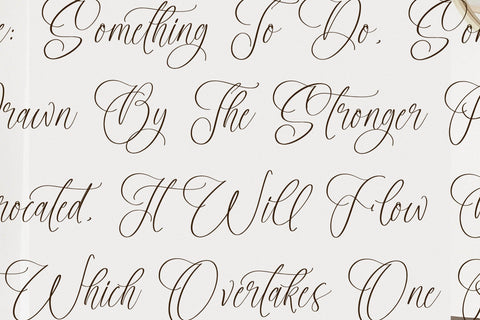 e: Something To Do, So
rawn By The Stronger
rocated, It Will Flow
Which Overtakes One